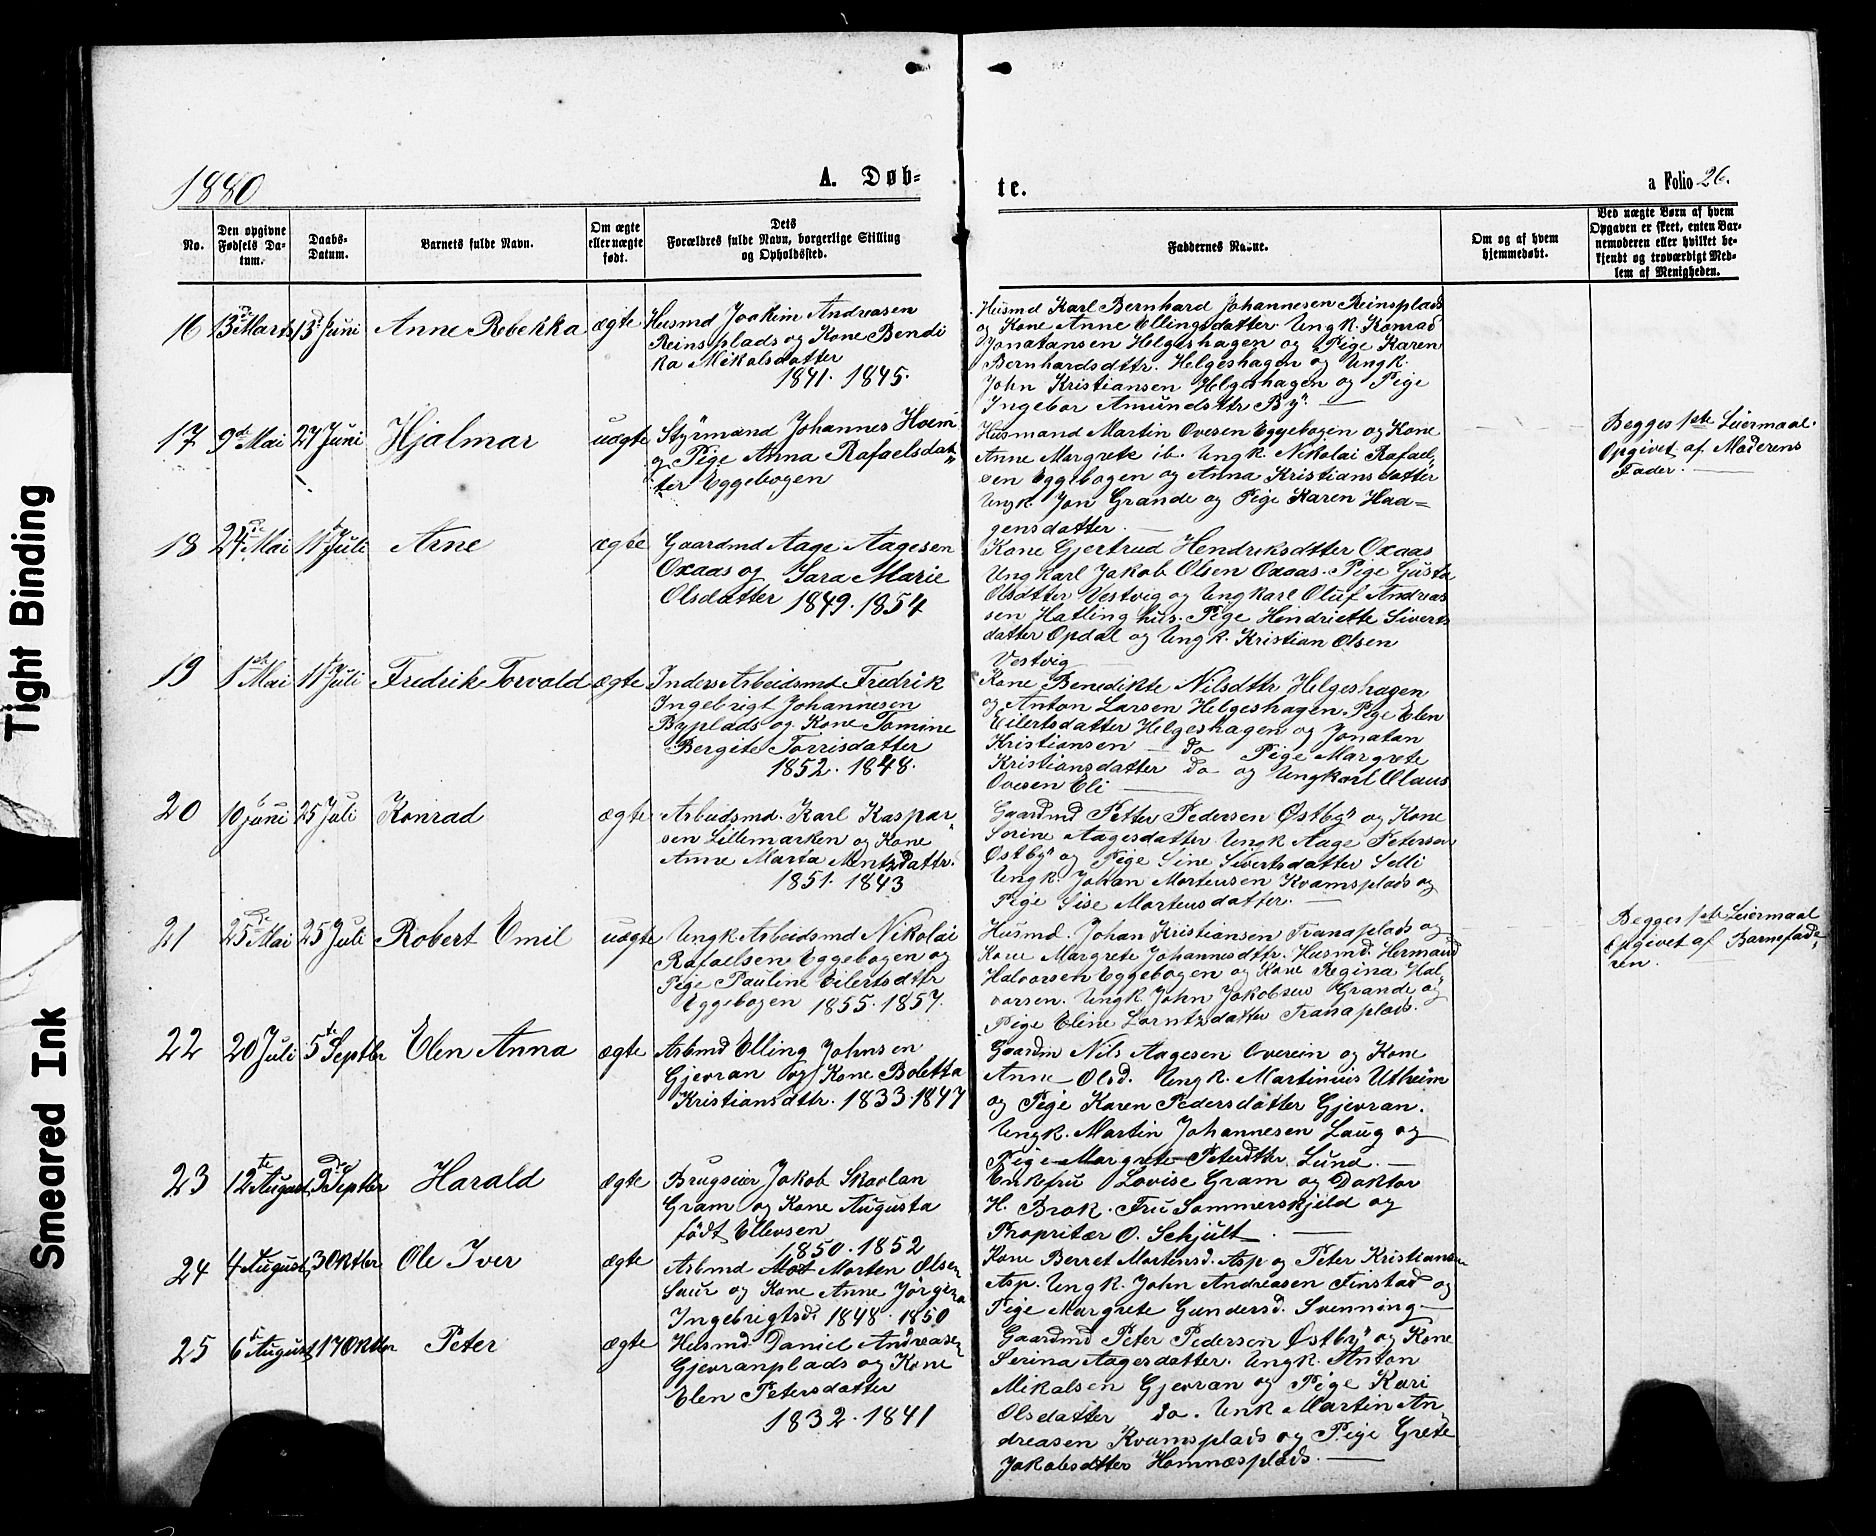 1880
A. Døb-
te.
a Folio 26.
No.
Den opgivne Fødsels Da-
tum.
Daabs-
Datum.
Barnets fulde Navn.
Om ægte
eller uægte
født.
Dets
Forældres fulde Navn, borgerlige Stilling
og Opholdssted.
Faddernes Navne.
Om og af hvem
hjemmedøbt.
Ved uægte Børn af hvem
Opgaven er skeet, enten Bar-
nemoderen eller hvilket be-
kjendt og troværdigt Med-
lem af Menigheden.
16 13de Marts 13de Juni Anne Rebekka ægte
Husmd Joakim Andreasen
Reinsplads og Kone Bendi
ka Mikalsdatter
1841. 1845.
Husmd Karl Bernhard Johannesen Reinsplads
og Kone Anne Ellingsdatter. Ungk. Konrad
Jonatansen Helgeshagen og Pige Karen
Bernhardsdttr. Helgeshagen og Ungk.
John Kristiansen Helgeshagen og Pige
Ingebor Amundsttr By.
17 9de Mai 27 Juni Hjalmar uægte
Styrmand Johannes Hoem
og Pige Anna Rafaelsdat
ter Eggebogen
Husmand Martin Ovesen Eggebogen og Kone
Anne Margrete ib. Ungk. Nikolai Rafael
sen Eggebogen og Anna Kristiansdatter
Ungk. Jon Grande og Pige Karen Haa-
gensdatter.
Begges 1ste Leiermaal.
Opgivet af Moderens
Fader.
18 24de Mai 11te Juli Arne ægte
Gaardmd Aage Aagesen
Oxaas og Sara Marie
Olsdatter 1849. 1854
Kone Gjertrud Hendriksdtter Oxaas
Ungkarl Jakob Olsen Oxaas. Pige Gusta
Olsdtter Vestvig og Ungkarl Oluf Andreas
sen Hatlinghus. Pige Hendriette Siverts
datter Opdal og Ungk. Kristian Olsen
Vestvig
19 1ste Mai 11te Juli Fredrik Torvald ægte
Inders Arbeidsmd Fredrik
Ingebrigt Johannesen
Byplads og Kone Tomine
Bergite Torrisdatter
1852. 1848.
Kone Benedikte Nilsdttr Helgeshagen
og Anton Larsen Helgeshagen. Pige Elen
Eilertsdatter Helgeshagen og Jonatan
Kristiansen do Pige Margrete
Kristiansdatter do og Ungkarl Olaus
Ovesen Eli
20 10 Juni 25 Juli Konrad ægte
Arbeidsmd. Karl Kaspar-
sen Lillemarken og Kone
Anne Marta Mntzdattr.
1851. 1843
Gaardmd Petter Pedersen Østby og Kone
Serine Aagesdatter Ungk Aage Petersen
Østby og Pige Sine Sivertsdatter Selli
Ungk. Johan Mortensen Kvamsplads og
Pige Sise Mortensdatter.
21 25de Mai 25 Juli Robert Emil uægte
Ungk Arbeidsmd Nikolai
Rafaelsen Eggebogen og
Pige Pauline Eilertsdttr
Eggebogen 1855. 1857.
Husmd. Johan Kristiansen Tranaplads og
Kone Margrete Johannesdttr. Husmd. Hermand
Halvorsen Eggebogen og Kone Regina Hal
vorsen. Ungk. John Jakobsen Grande og
Pige Eline Lorntzdatter Tranaplads.
Begges 1ste Leiermaal
Opgivet af Barnefade
ren.
22 20 Juli 5te Septbr Elen Anna ægte
Arbmd Elling Johnsen
Gjevran og Kone Boletta
Kristiansdttr. 1833. 1847
Gaardm Nils Aagesen Overein og Kone
Anne Olsd. Ungk. Martinius Utheim
og Pige Karen Pedersdatter Gjevran.
Ungk. Martin Johannesen Laug og
Pige Margrete Petersdttr Lund.
23 12te August Septbr Harald ægte
Brugseier Jakob Skavlan
Gram og Kone Augusta
født Ellevsen
1850. 1852
Enkefru Lovise Gram og Doktor
H. Brok. Fru Sommerskjeld og
Propritær O. Schjult
24 4 August 3 Oktbr Ole Iver ægte
Arbmd Mot Morten Olsen
Saur og Kone Anne Jørgina
Ingebrigtsd. 1848. 1850
Kone Berret Martensd. Asp og Peter Kristiansen
Asp. Ungk. John Andreasen Finstad og
Pige Margrete Gundersd. Svenning
25 6te August 17 Oktbr Peter ægte
Husmd Daniel Andreasen
Gjevranplads og Kone
Elen Petersdatter
1832. 1841
Gaardmd Peter Pedersen Østby og Kone
Serina Aagesdatter. Ungk. Anton
Mikalsen Gjevran og Pige Kari
Olsdatter do. Unk Martin An
dreasen Kvamsplads og Pige Grete
Jakobsdtter Homnæsplads.
Tight Binding
Smeared Ink